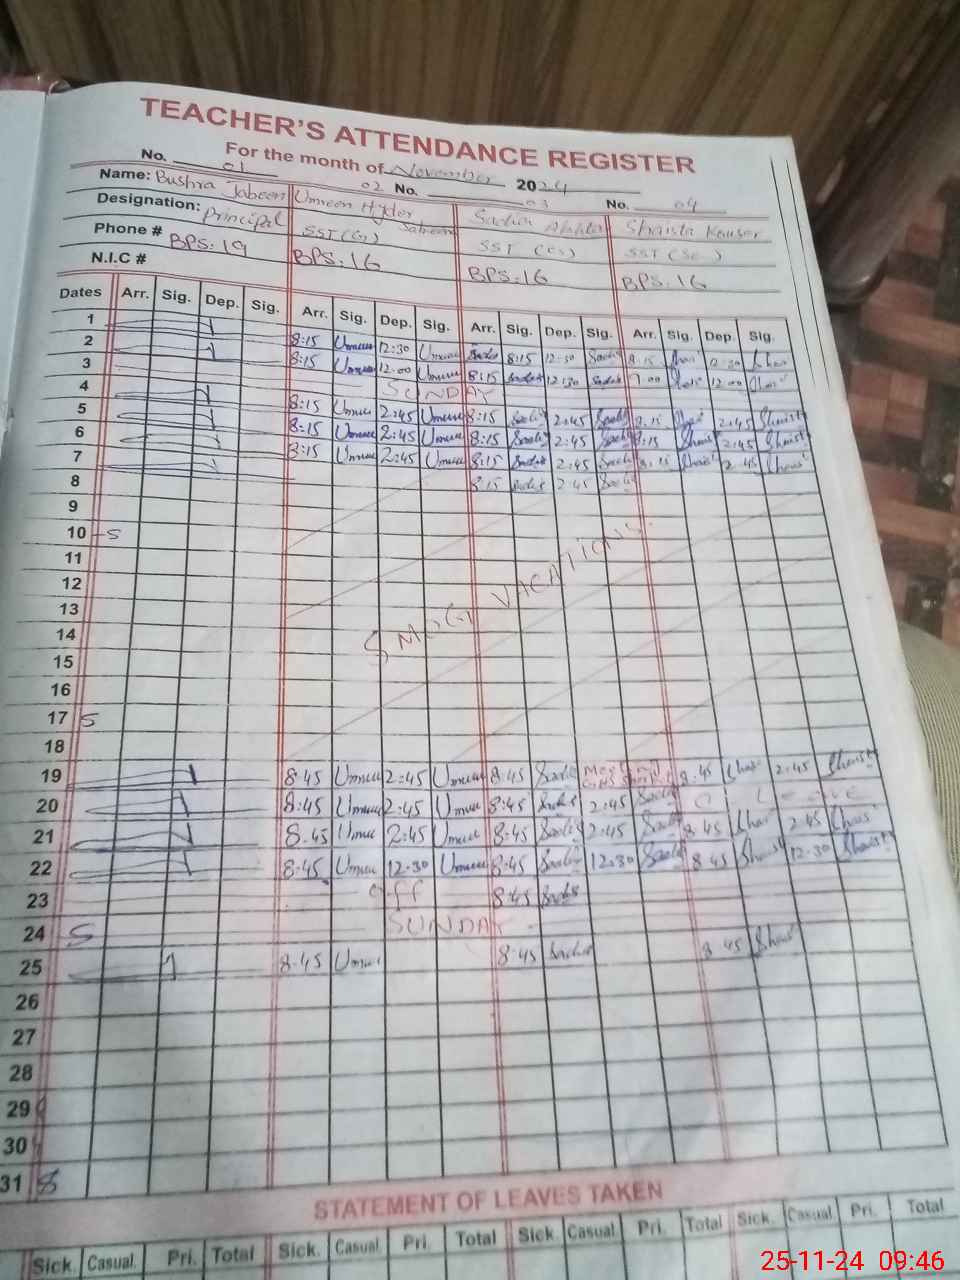 TEACHER'S ATTENDANCE REGISTER
For the month of November 2024
No. 01 02 No. 03 No. 04
Name: Bushra Jabeen Umreen Hyder Sadia Shaista Kausar
Designation: Principal SST (G) SST (G) SST (Sc)
Phone # BPS: 19 BPS: 16 BPS: 16 BPS: 16
N.I.C #
Dates Arr. Sig. Dep. Sig. Arr. Sig. Dep. Sig. Arr. Sig. Dep. Sig. Arr. Sig. Dep. Sig.
1 8:15 Umree 12:30 Umree Sadia 8:15 12:30 Sadia 8:15 Shais 12:30 Shais
2 8:15 Umree 12:00 Umree 8:15 Sadia 12:30 Sadia 9:00 Shais 12:00 Shais
3 SUNDAY
4 8:15 Umree 2:45 Umree 8:15 Sadia 2:45 Sadia 8:15 Shais 2:45 Shaist
5 8:15 Umree 2:45 Umree 8:15 Sadia 2:45 Sadia 8:15 Shais 2:45 Shaist
6 8:15 Umree 2:45 Umree 8:15 Sadia 2:45 Sadia 8:15 Shais 2:45 Shais
7 8:15 Sadia 2:45 Sadia
8
9
10 S
11
12
13
SMOG VACATIONS.
14
15
16
17 S
18
19 8:45 Umree 2:45 Umree 8:45 Sadia 8:45 Shais 2:45 Shaist
20 8:45 Umree 2:45 Umree 8:45 Sadia 2:45 Sadia Leave
21 8:45 Umree 2:45 Umree 8:45 Sadia 2:45 Sadia 8:45 Shais 2:45 Shais
22 8:45 Umree 12:30 Umree 8:45 Sadia 12:30 Sadia 8:45 Shaist 12:30 Shaist
23 off 8:45 Sadia
24 S SUNDAY
25 8:45 Umree 8:45 Sadia 8:45 Shais
26
27
28
29
30
31 S
STATEMENT OF LEAVES TAKEN
Sick. Casual. Pri. Total Sick. Casual. Pri. Total Sick. Casual. Pri. Total Sick. Casual. Pri. Total
25-11-24 09:46